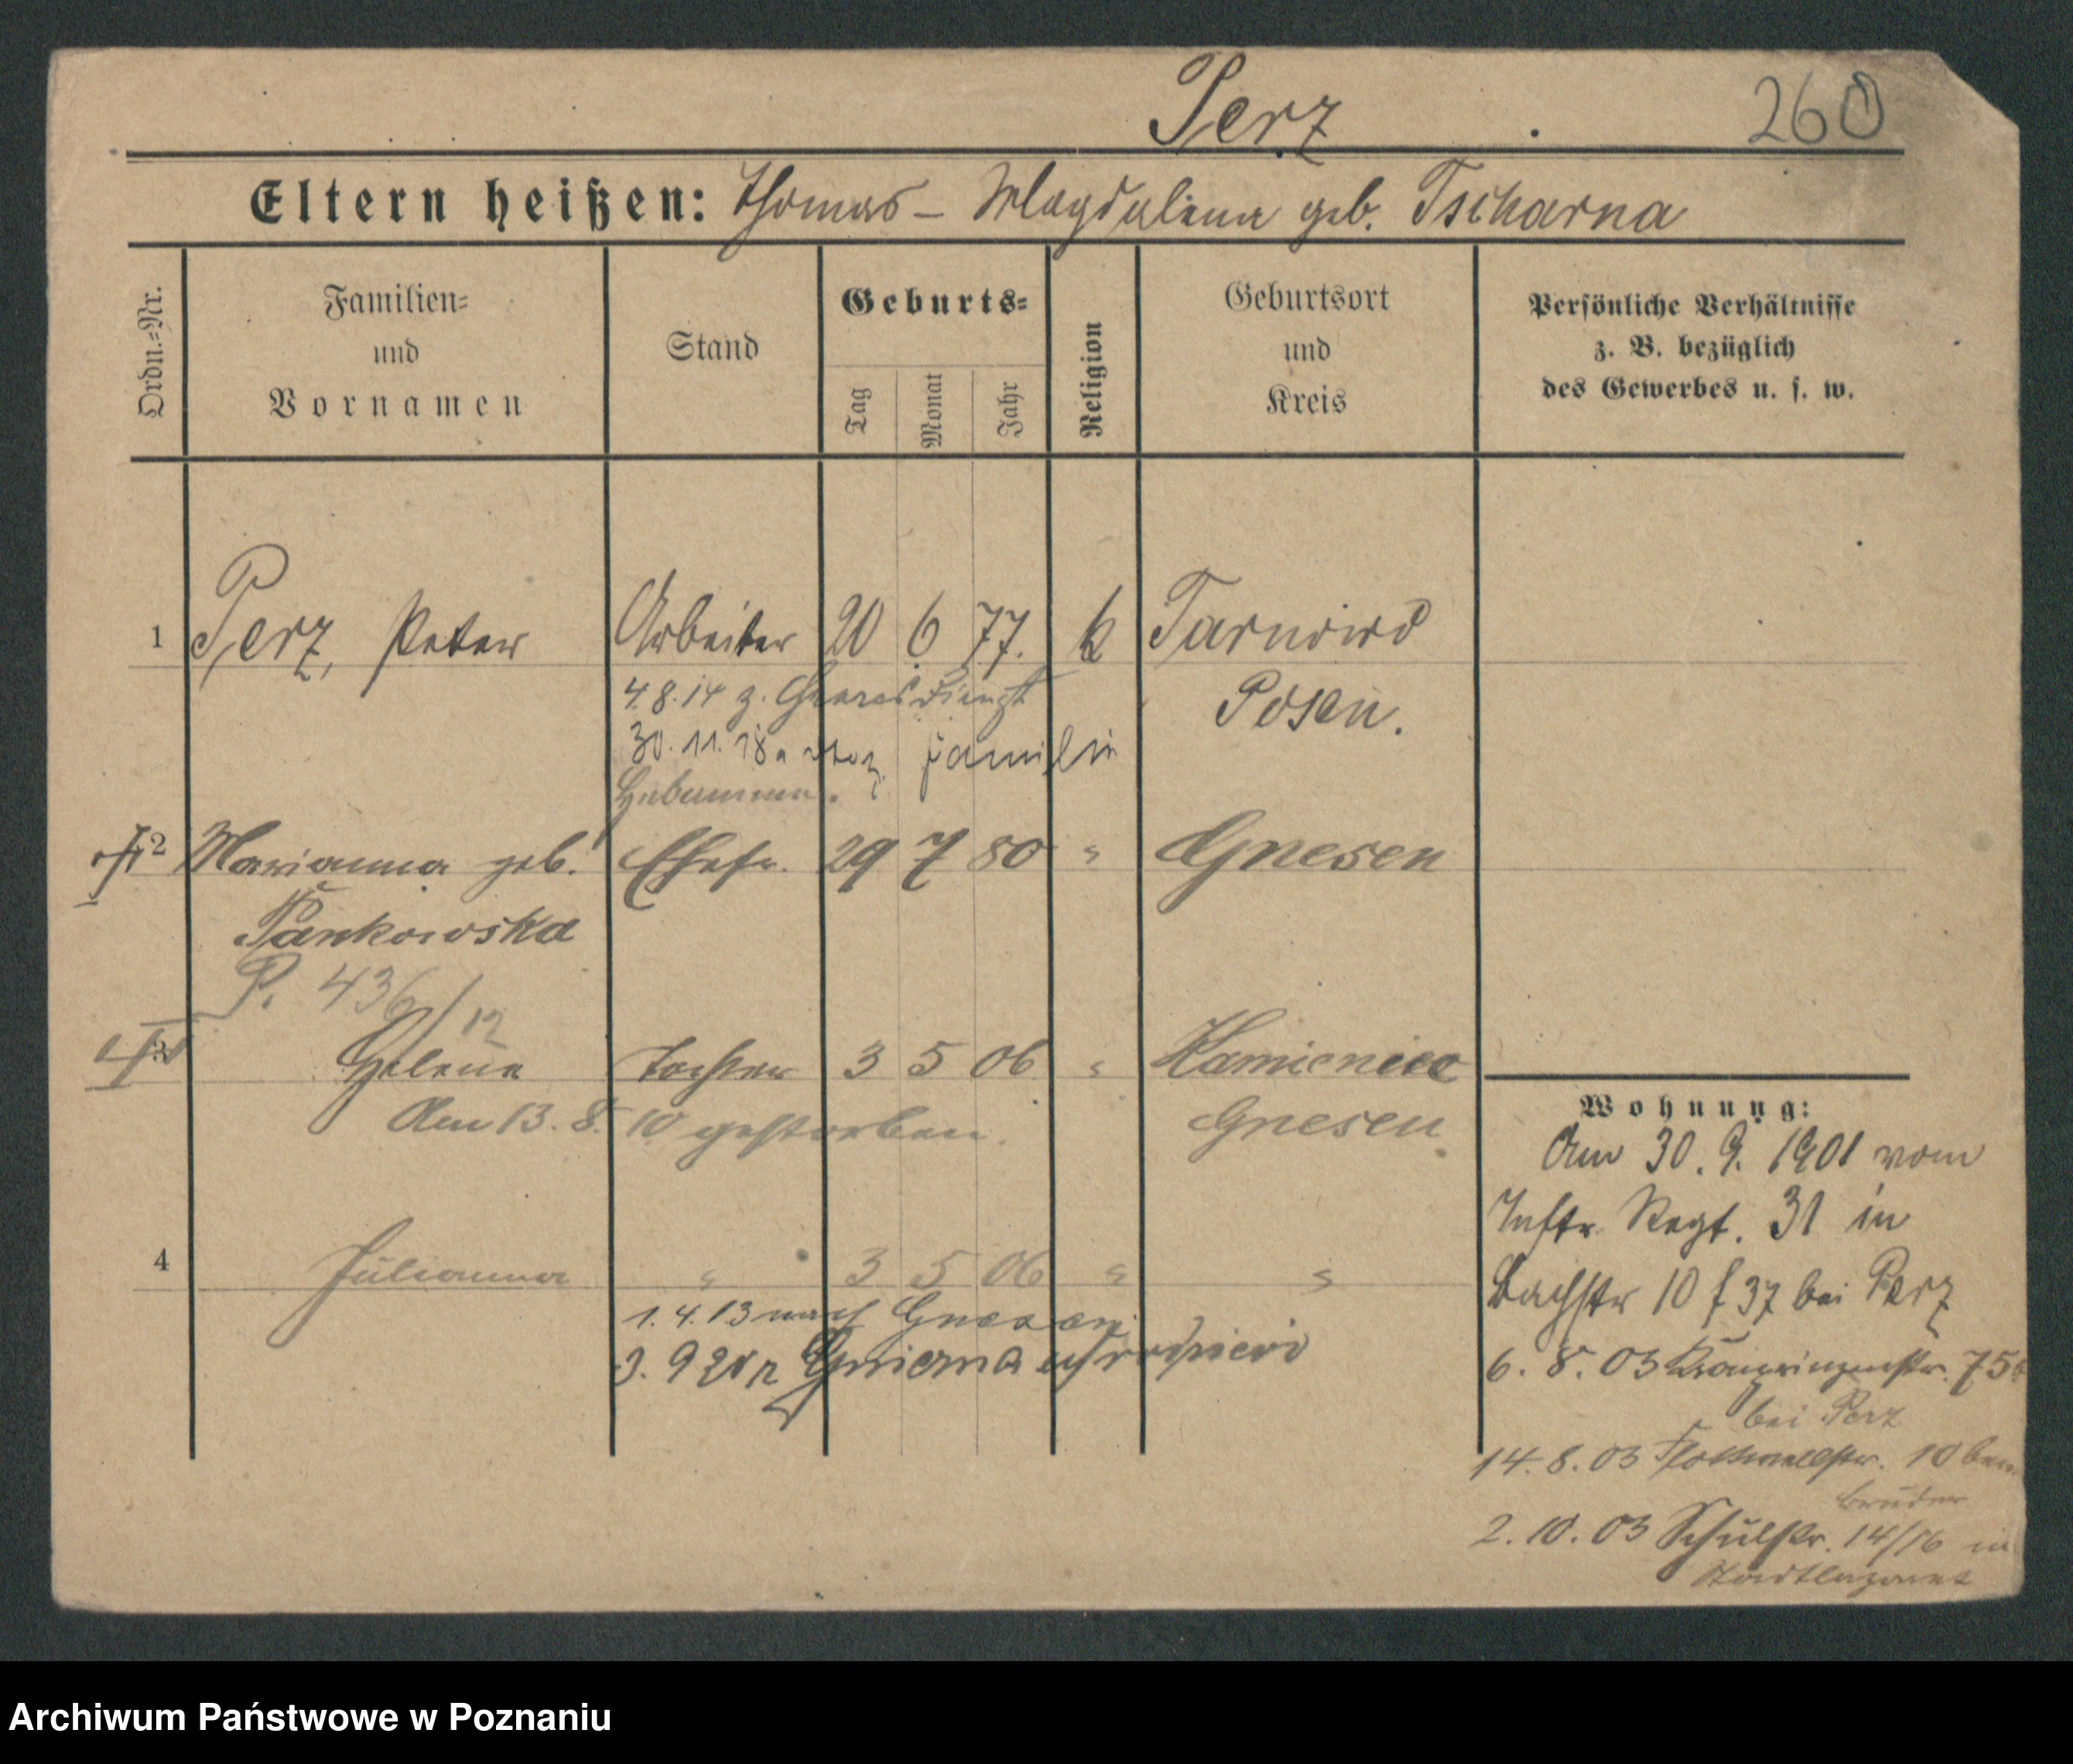 Perz 260
Eltern heißen: Thomas – Magdalena geb. Tscharna
Ordn.=Nr.
Familien=
und
Vornamen
Stand
Geburts=
Tag
Monat
Jahr
Religion
Geburtsort
und
Kreis
Persönliche Verhältnisse
z. B. bezüglich
des Gewerbes u. s. w.
1 Perz, Peter Arbeiter 20 6 77. k Tarnowo
4.8.14 z. Heeresdienst Posen.
30.11.18 Familie
Hebamme.
2 Marianna geb. Ehefr. 29 7 80 " Gnesen
Pankowska
P. 436/12
3 Helene Tochter 3 5 06 " Kamieniec
Am 13. 8. 10 gestorben. Gnesen
4 Julianna " 3 5 06 " "
1.4.13 nach Gnesen
3. 9 20 n
Wohnung:
Am 30. 9. 1901 vom
Inftr. Regt. 31 in
Bachstr 10 f 37 bei Perz
6. 8. 03 Kronprinzenstr. 75
bei Perz
14. 8. 03 Flottwellstr. 10 beim
Bruder
2. 10. 03 Schulstr. 14/16 in
Stadtlazaret
Archiwum Państwowe w Poznaniu